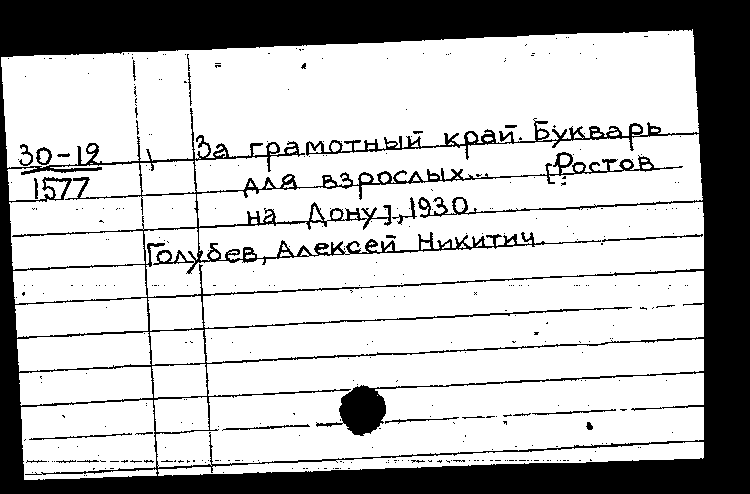 30-12 За грамотный край. Букварь
1577 для взрослых... [Ростов
на Дону], 1930.
Голубев, Алексей Никитич.